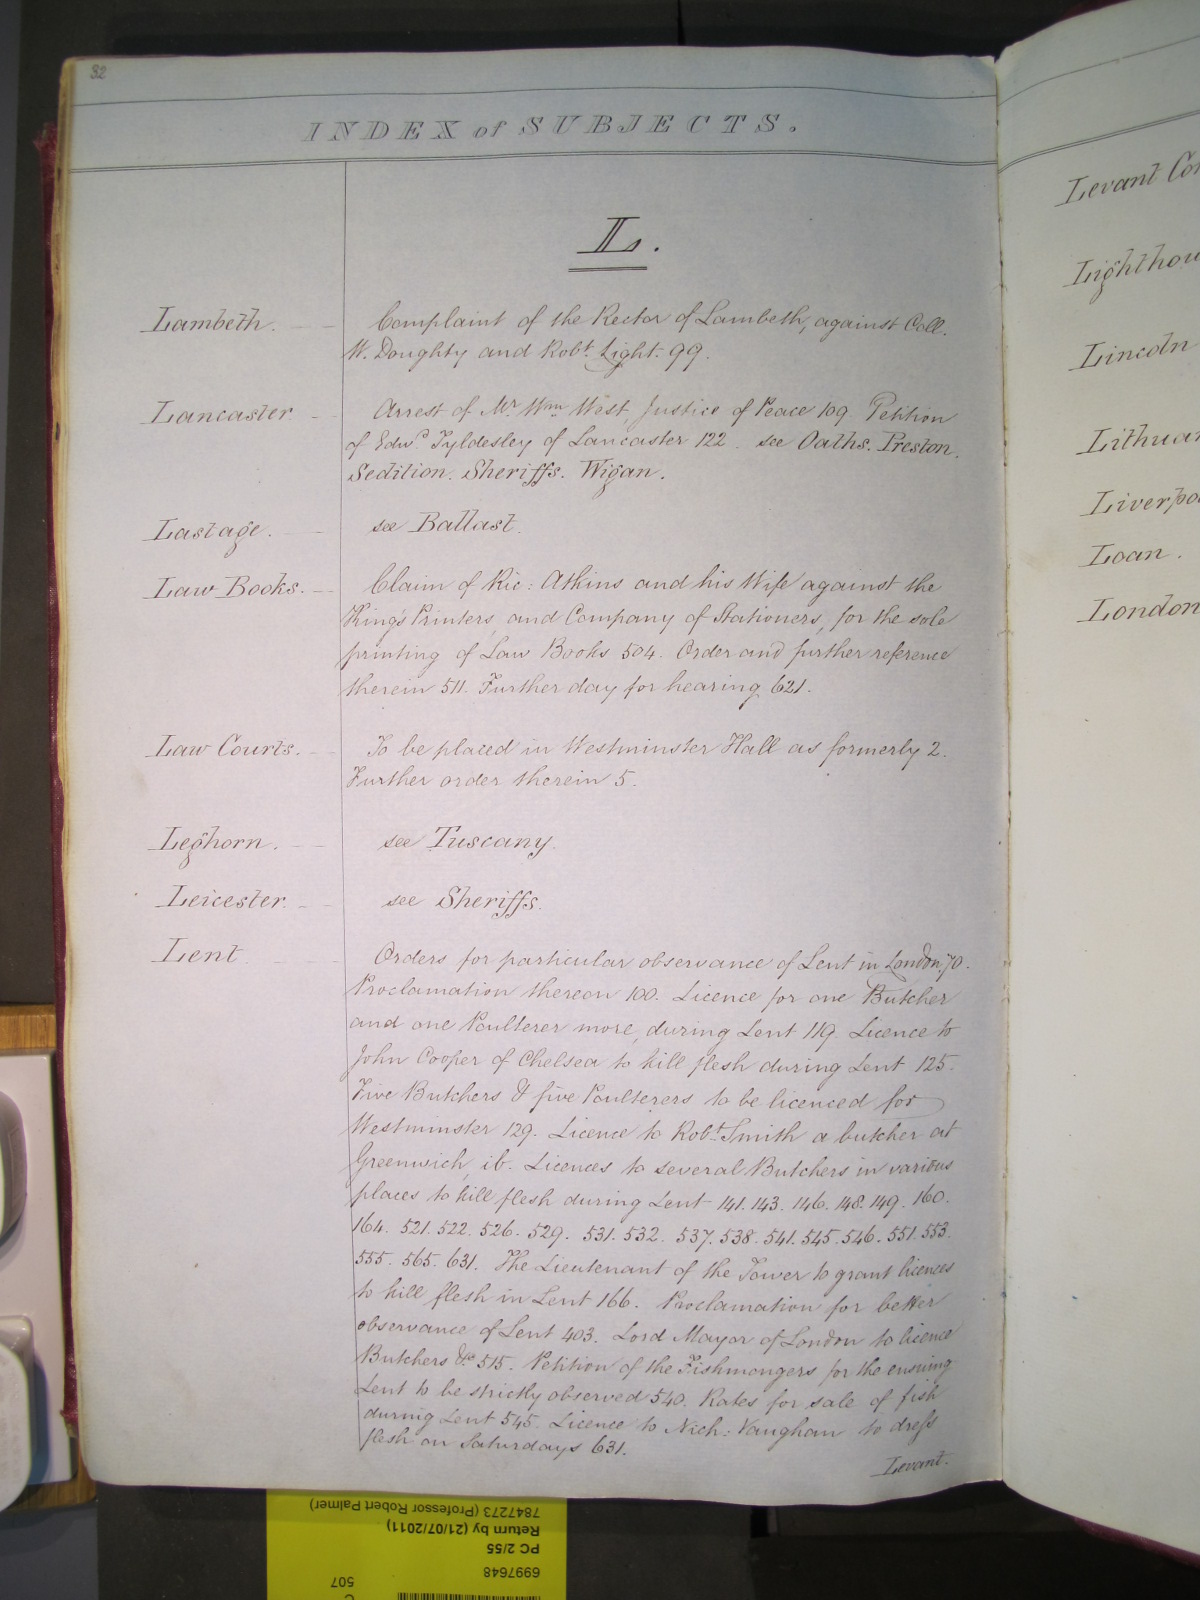 32
INDEX of SUBJECTS.
L.
Lambeth. Complaint of the Rector of Lambeth, against Coll.
W. Doughty and Robt. Light. 99.
Lancaster Arrest of Mr. Wm. West, Justice of Peace 109. Petition
of Edwd. Tyldesley of Lancaster 122. see Oaths. Preston.
Sedition. Sheriffs. Wigan.
Lastage. see Ballast.
Law Books. Claim of Ric: Atkins and his Wife against the
King's Printers, and Company of Stationers, for the sole
printing of Law Books 504. Order and further reference
therein 511. Further day for hearing 621.
Law Courts. To be placed in Westminster Hall as formerly 2.
Further order therein 5.
Leghorn. see Tuscany.
Leicester. see Sheriffs.
Lent Orders for particular observance of Lent in London 70.
Proclamation thereon 100. Licence for one Butcher
and one Poulterer more, during Lent 119. Licence to
John Cooper of Chelsea to kill flesh during Lent 125.
Five Butchers & five Poulterers to be licenced for
Westminster 129. Licence to Robt. Smith a butcher at
Greenwich, ib. Licences to several Butchers in various
places to kill flesh during Lent 141. 143. 146. 148. 149. 160.
164. 521. 522. 526. 529. 531. 532. 537. 538. 541. 545. 546. 551. 553.
555. 565. 631. The Lieutenant of the Tower to grant licences
to kill flesh in Lent 166. Proclamation for better
observance of Lent 403. Lord Mayor of London to licence
Butchers &c 515. Petition of the Fishmongers for the ensuing
Lent to be strictly observed 540. Rates for sale of fish
during Lent 545. Licence to Nich: Vaughan to dress
flesh on Saturdays 631.
Levant.
Levant
Lincoln
Liverpo
Loan.
London
7847273 (Professor Robert Palmer)
Return by (21/07/2011)
PC 2/55
6997648
507
C